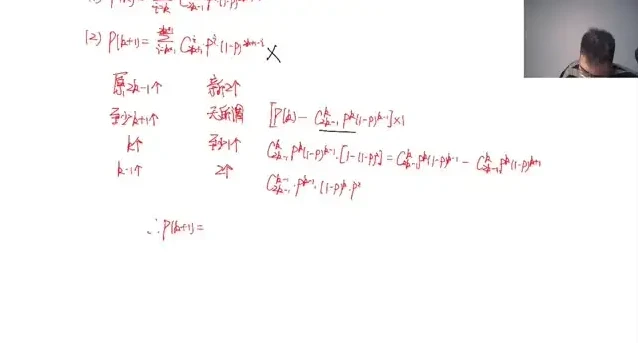 (2) P(k+1) = ∑ C_{2k+1}^{i} p^{i} (1-p)^{2k+1-i} ×
原2k-1个 新2个
至少k+1个 无所谓 [P(k) - C_{2k-1}^{k} p^{k} (1-p)^{k-1}]×1
k个 至少1个 C_{2k-1}^{k} p^{k} (1-p)^{k-1} · [1-(1-p)²] = C_{2k-1}^{k} p^{k} (1-p)^{k-1} - C_{2k-1}^{k} p^{k} (1-p)^{k+1}
k-1个 2个 C_{2k-1}^{k-1} · p^{k-1} · (1-p)^{k} · p²
∴P(k+1) =